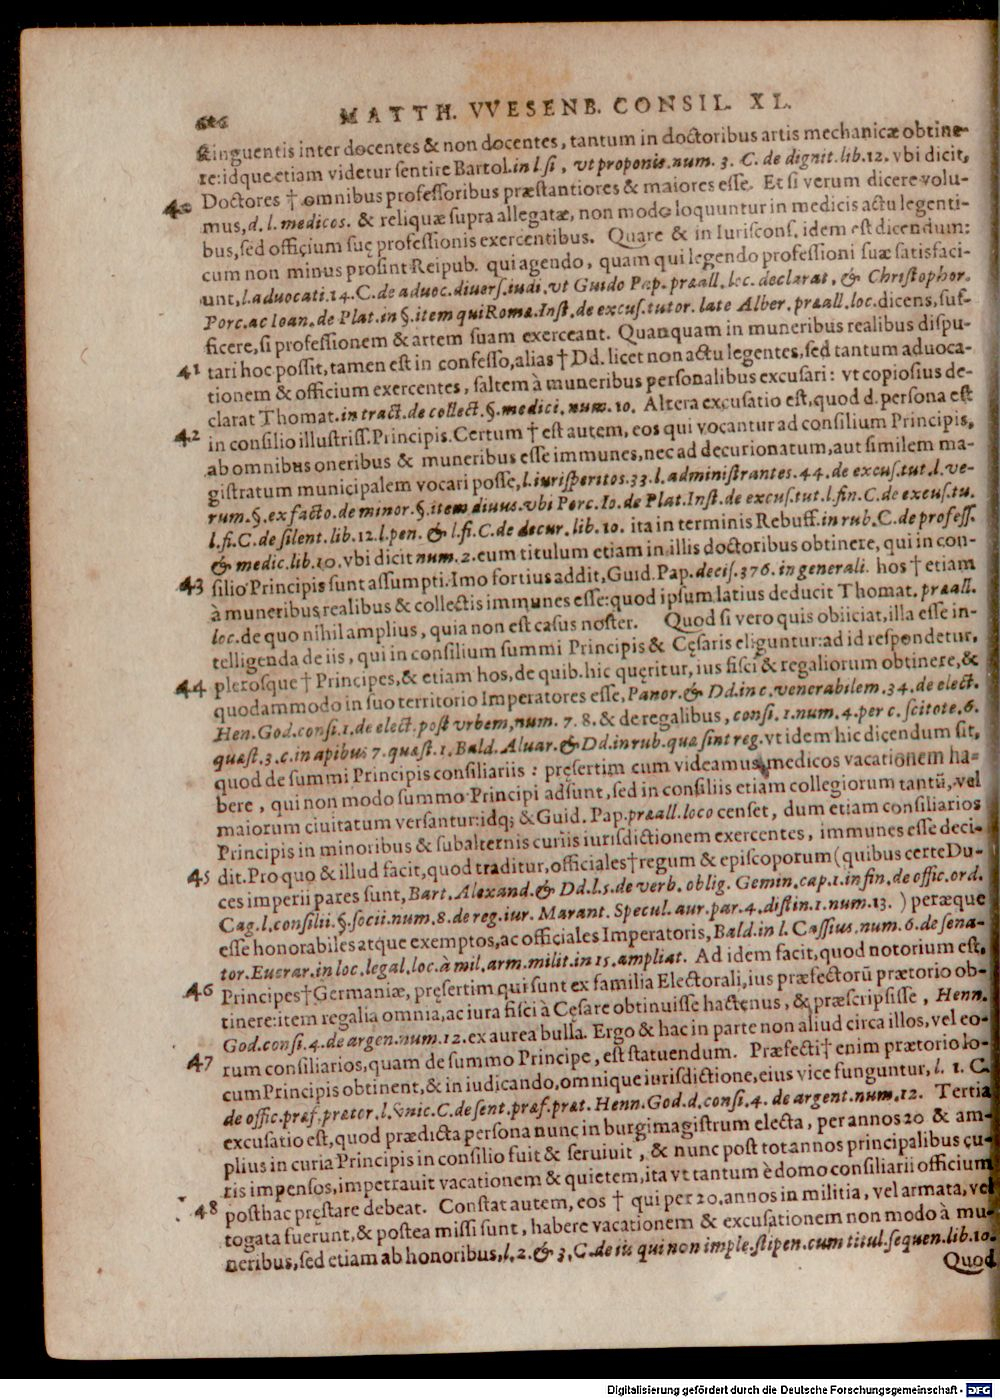 MATTH. VVESENB. CONSIL. XL.
stinguentis inter docentes & non docentes, tantum in doctoribus artis mechanicæ obtine-
re: idque etiam videtur sentire Bartol. in l. si, vt proponis. num. 3. C. de dignit. lib. 12. vbi dicit,
40 Doctores † omnibus professoribus præstantiores & maiores esse. Et si verum dicere volu-
mus, d. l. medicos. & reliquæ supra allegatæ, non modo loquuntur in medicis actu legenti-
bus, sed officium suę professionis exercentibus. Quare & in Iurisconf. idem est dicendum:
cum non minus prosint Reipub. qui agendo, quam qui legendo professioni suæ satisfaci-
unt, l. aduocati. 14. C. de aduoc. diuers. iudi. vt Guido Pap. præall. loc. declarat, & Christophor.
Porc. ac Ioan. de Plat. in §. item qui Romæ. Inst. de excus. tutor. late Alber. præall. loc. dicens, suf-
ficere, si professionem & artem suam exerceant. Quanquam in muneribus realibus dispu-
41 tari hoc possit, tamen est in confesso, alias † Dd. licet non actu legentes, sed tantum aduoca-
tionem & officium exercentes, saltem à muneribus personalibus excusari: vt copiosius de-
clarat Thomat. in tract. de collect. §. medici. num. 10. Altera excusatio est, quod d. persona est
42 in consilio illustriss. Principis. Certum † est autem, eos qui vocantur ad consilium Principis,
ab omnibus oneribus & muneribus esse immunes, nec ad decurionatum, aut similem ma-
gistratum municipalem vocari posse, l. iurisperitos. 33. l. administrantes. 44. de excus. tut. l. ve-
rum. §. ex facto. de minor. §. item diuus. vbi Porc. Io. de Plat. Inst. de excus. tut. l. fin. C. de excus. tu.
l. fi. C. de silent. lib. 12. l. pen. & l. fi. C. de decur. lib. 10. ita in terminis Rebuff. in rub. C. de profess.
& medic. lib. 10. vbi dicit num. 2. eum titulum etiam in illis doctoribus obtinere, qui in con-
43 silio Principis sunt assumpti. Imo fortius addit, Guid. Pap. decis. 376. in generali. hos † etiam
à muneribus realibus & collectis immunes esse: quod ipsum latius deducit Thomat. præall.
loc. de quo nihil amplius, quia non est casus noster. Quod si vero quis obiiciat, illa esse in-
telligenda de iis, qui in consilium summi Principis & Cęsaris eliguntur: ad id respondetur,
44 plerosque † Principes, & etiam hos, de quib. hic quęritur, ius fisci & regaliorum obtinere, &
quodammodo in suo territorio Imperatores esse, Panor. & Dd. in c. venerabilem. 34. de elect.
Hen. God. consi. 1. de elect. post vrbem, num. 7. 8. & de regalibus, consi. 1. num. 4. per c. scitote. 6.
quæst. 3. c. in apibus 7. quæst. 1. Bald. Aluar. & Dd. in rub. quæ sint reg. vt idem hic dicendum sit,
quod de summi Principis consiliariis: pręsertim cum videamus medicos vacationem ha-
bere, qui non modo summo Principi adsunt, sed in consiliis etiam collegiorum tantū, vel
maiorum ciuitatum versantur: idq; & Guid. Pap. præall. loco censet, dum etiam consiliarios
Principis in minoribus & subalternis curiis iurisdictionem exercentes, immunes esse deci-
45 dit. Pro quo & illud facit, quod traditur, officiales † regum & episcoporum (quibus certe Du-
ces imperii pares sunt, Bart. Alexand. & Dd. l. 5. de verb. oblig. Gemin. cap. 1. in fin. de offic. ord.
Cag. l. consilii. §. socii. num. 8. de reg. iur. Marant. Specul. aur. par. 4. distin. 1. num. 13.) peræque
esse honorabiles atque exemptos, ac officiales Imperatoris, Bald. in l. Cassius. num. 6. de sena-
tor. Euerar. in loc. legal. loc. à mil. arm. milit. in 15. ampliat. Ad idem facit, quod notorium est,
46 Principes † Germaniæ, pręsertim qui sunt ex familia Electorali, ius præfectorū prætorio ob-
tinere: item regalia omnia, ac iura fisci à Cęsare obtinuisse hactenus, & præscripsisse, Henn.
God. consi. 4. de argen. num. 12. ex aurea bulla. Ergo & hac in parte non aliud circa illos, vel eo-
47 rum consiliarios, quam de summo Principe, est statuendum. Præfecti † enim prætorio lo-
cum Principis obtinent, & in iudicando, omnique iurisdictione, eius vice funguntur, l. 1. C.
de offic. præf. prætor. l. vnic. C. de sent. præf. præt. Henn. God. d. consi. 4. de argent. num. 12. Tertia
excusatio est, quod prædicta persona nunc in burgimagistrum electa, per annos 20 & am-
plius in curia Principis in consilio fuit & seruiuit, & nunc post tot annos principalibus cu-
ris impensos, impetrauit vacationem & quietem, ita vt tantum è domo consiliarii officium
48 posthac pręstare debeat. Constat autem, eos † qui per 20. annos in militia, vel armata, vel
togata fuerunt, & postea missi sunt, habere vacationem & excusationem non modo à mu-
neribus, sed etiam ab honoribus, l. 2. & 3. C. de iis qui non imple. stipen. cum titul. sequen. lib. 10.
Quod
Digitalisierung gefördert durch die Deutsche Forschungsgemeinschaft - DFG